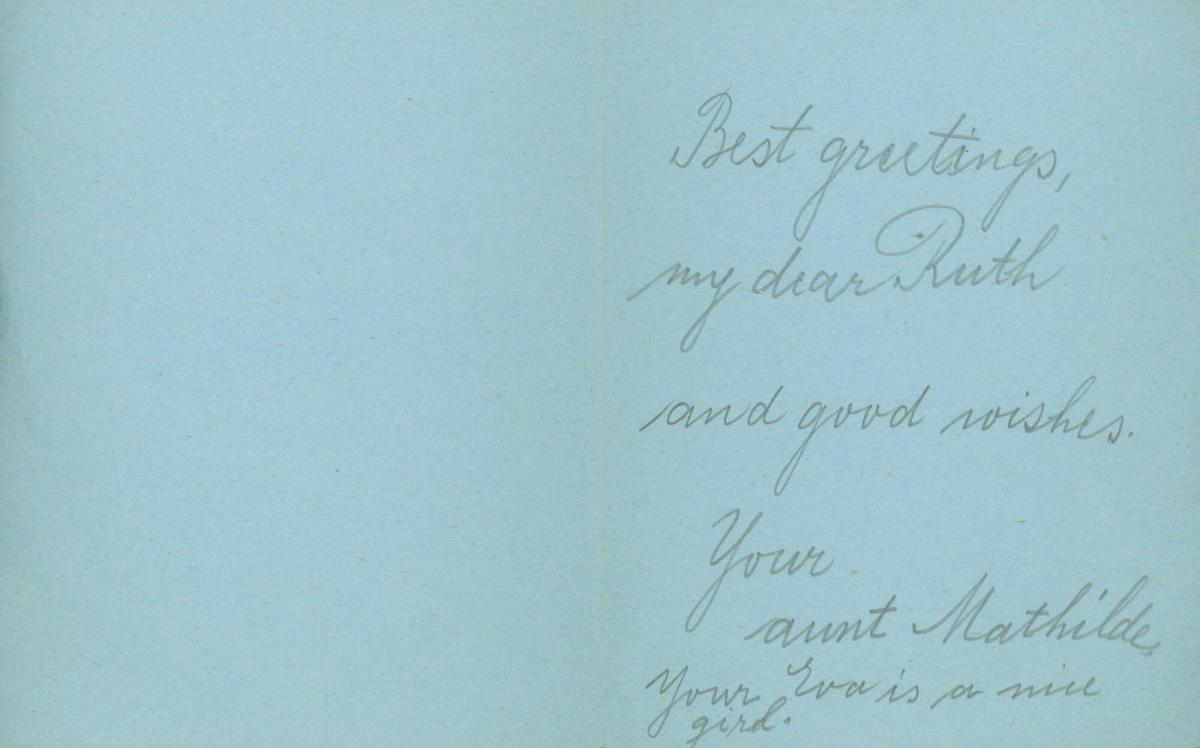 Best greetings,
my dear Ruth
and good wishes.
Your
aunt Mathilde.
Your Eva is a nice
girl.